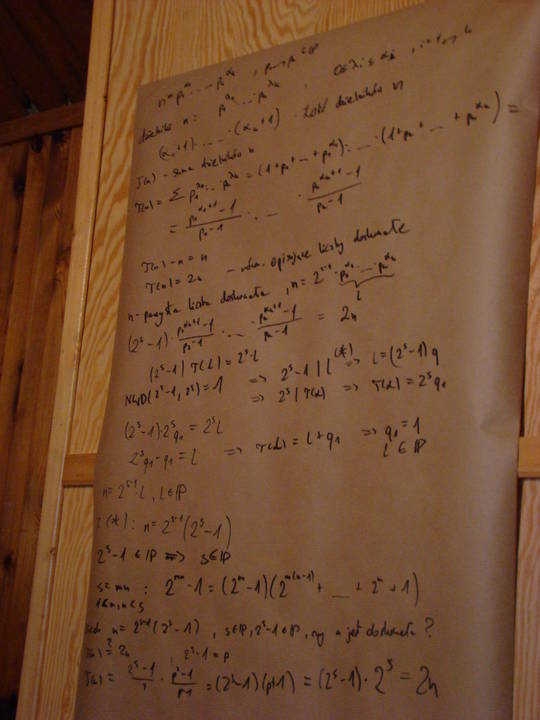 n = p₁^α₁ · … · p_k^α_k , p₁…p_k ∈ ℙ
dzielniki n: p₁^λ₁ … p_k^λ_k 0≤λ_i≤α_i, i=1…k
(α₁+1) · … · (α_k+1) ilość dzielników n
τ(n) - suma dzielników n
τ(n) = Σ p₁^λ₁ … p_k^λ_k = (1+p₁+…+p₁^α₁) · … · (1+p_k+…+p_k^α_k) =
= (p₁^(α₁+1)-1)/(p₁-1) · … · (p_k^(α_k+1)-1)/(p_k-1)
τ(n)-n=n
τ(n)=2n - równ. opisujące liczby doskonałe
n - parzysta liczba doskonała, n=2^(s-1) · p₂^α₂ · … · p_k^α_k
l
(2^s-1) · (p₂^(α₂+1)-1)/(p₂-1) · … · (p_k^(α_k+1)-1)/(p_k-1) = 2n
(2^s-1) τ(l) = 2^s · l
NWD(2^s-1, 2^s)=1 ⇒ 2^s-1 | l (*) ⇒ l=(2^s-1)q₁
⇒ 2^s | τ(l) ⇒ τ(l)=2^s q₁
(2^s-1)·2^s q₁ = 2^s l
2^s q₁-q₁=l ⇒ τ(l)=l+q₁ ⇒ q₁=1
l∈ℙ
n=2^(s-1)·l, l∈ℙ
z (*): n=2^(s-1)(2^s-1)
2^s-1∈ℙ ⇒ s∈ℙ
s=mn : 2^(mn)-1=(2^m-1)(2^(m(n-1))+ … +2^m+1)
1<m,n<s
Niech n=2^(s-1)(2^s-1), s∈ℙ, 2^s-1∈ℙ, czy n jest doskonała?
τ(n)≟2n 2^s-1=p
τ(n)= (2^s-1)/1 · (p²-1)/(p-1) =(2^s-1)(p+1)=(2^s-1)·2^s=2n